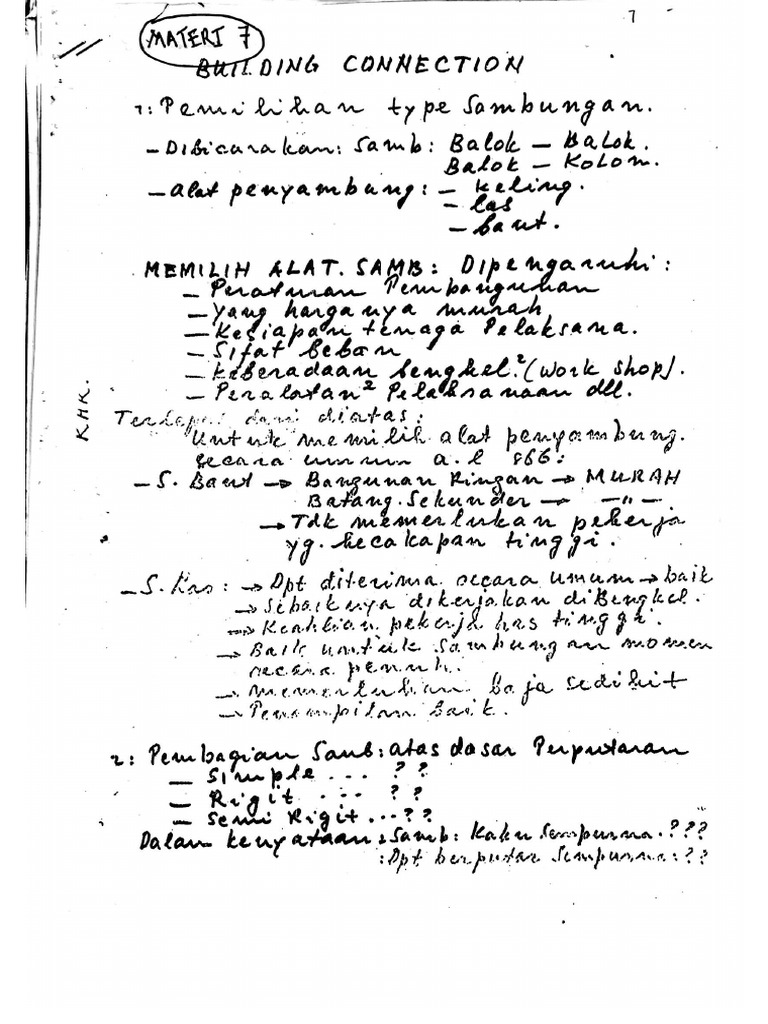 7
MATERI 7
BUILDING CONNECTION
1: Pemilihan type Sambungan.
- Dibicarakan: Samb: Balok - Balok.
Balok - Kolom.
- Alat penyambung: - keling.
- las
- baut.
MEMILIH ALAT. SAMB: Dipengaruhi:
- Peraturan Pembangunan
- Yang harganya murah
- Kesiapan tenaga Pelaksana.
- Sifat beban
- Keberadaan bengkel.² (Work shop).
- Peralatan² Pelaksanaan dll.
KHK.
Terlepas dari diatas:
Untuk memilih alat penyambung.
secara umum a.l sbb:
- S. Baut → Bangunan Ringan → MURAH
Batang. Sekunder → -"-
→ Tdk memerlukan pekerja
yg. kecakapan tinggi.
- S. Las: → Dpt diterima secara umum → baik
→ Sebaiknya dikerjakan diBengkel.
→ Keahlian pekerja has tinggi.
→ Baik untuk Sambungan momen
secara penuh.
→ Memerlukan baja sedikit
→ Penampilan baik.
2: Pembagian Samb: atas dasar Perputaran
- Simple ... ??
- Rigit ... ??
- Semi Rigit ... ??
Dalam kenyataan: Samb: Kaku Sempurna. ???
: Dpt berputar Sempurna: ??